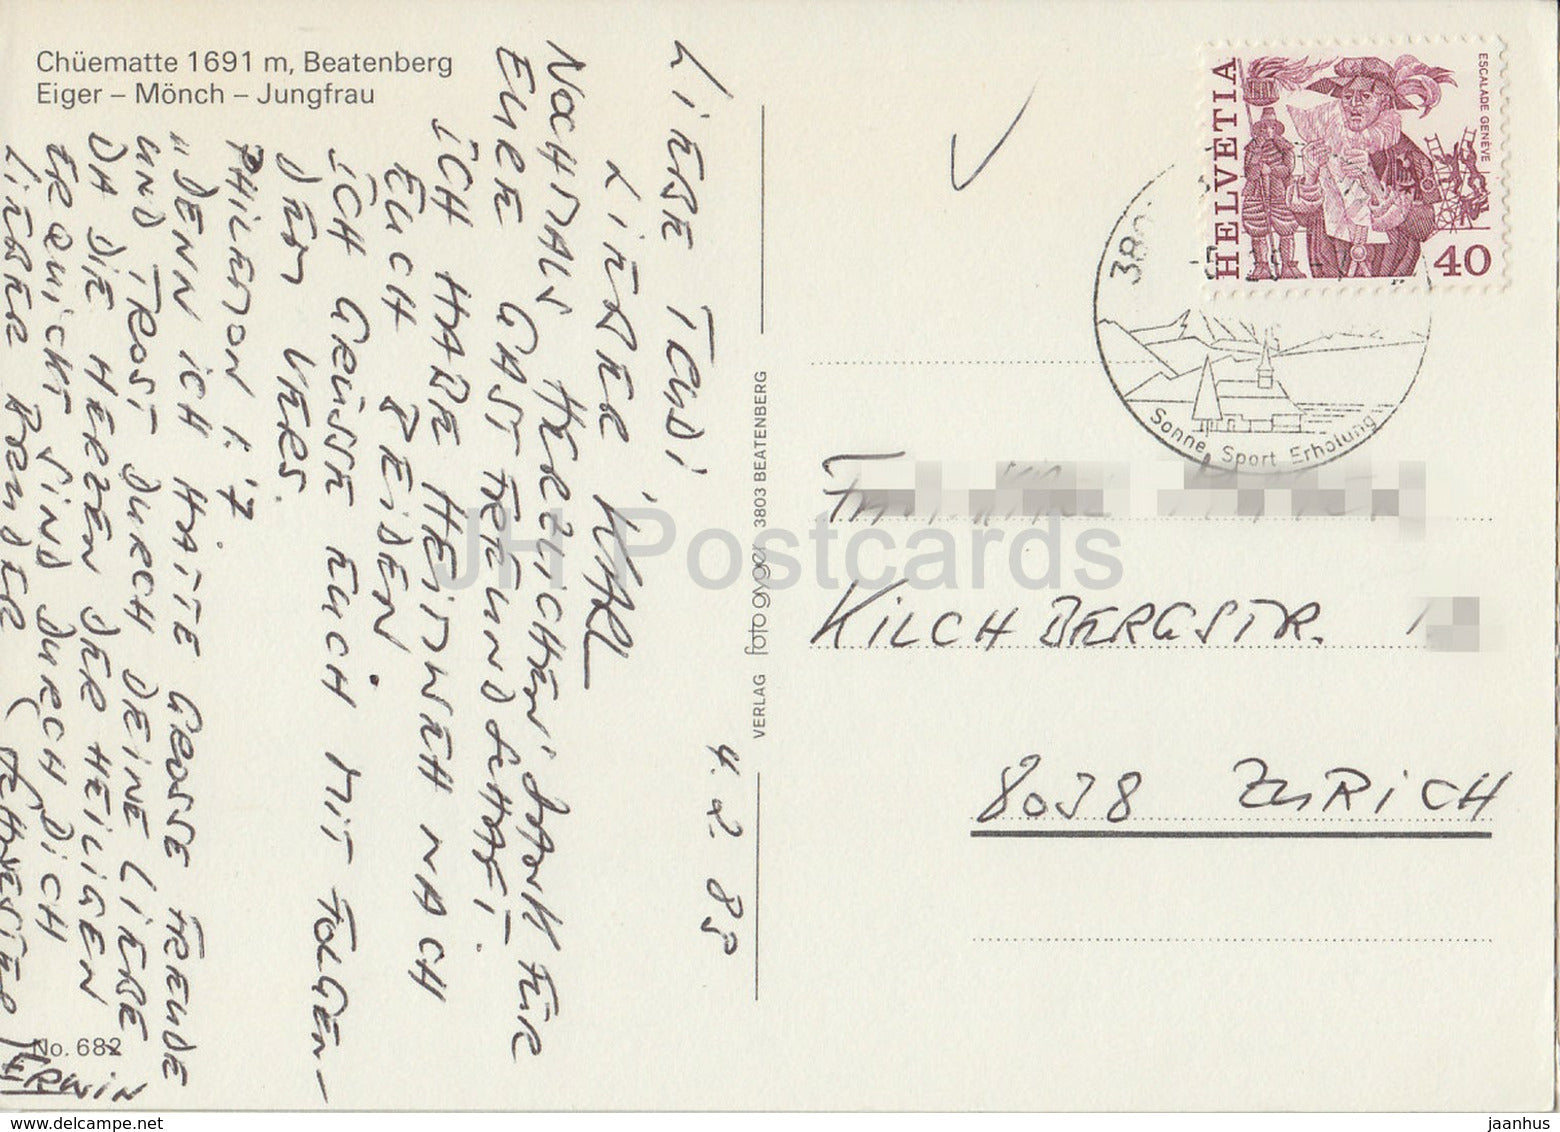 Chüematte 1691 m, Beatenberg
Eiger – Mönch – Jungfrau
4. 2. 85
LIEBE TRUDI,
LIEBER KARL
NOCHMALS HERZLICHEN DANK FÜR
EURE GASTFREUNDSCHAFT.
ICH HABE HEIMWEH NACH
EUCH BEIDEN
ICH GRÜSSE EUCH MIT FOLGEN-
DEM VERS.
PHILEMON 1. 7
"DENN ICH HATTE GROSSE FREUDE
UND TROST DURCH DEINE LIEBE
DA DIE HERZEN DER HEILIGEN
ERQUICKT SIND DURCH DICH
LIEBER BRUDER
ERWIN
No. 682
VERLAG foto gyger 3803 BEATENBERG
HELVETIA
ESCALADE GENÈVE
40
380
Sonne Sport Erholung
KILCHBERGSTR.
8038 ZÜRICH
JH Postcards
delcampe.net
jaanhus